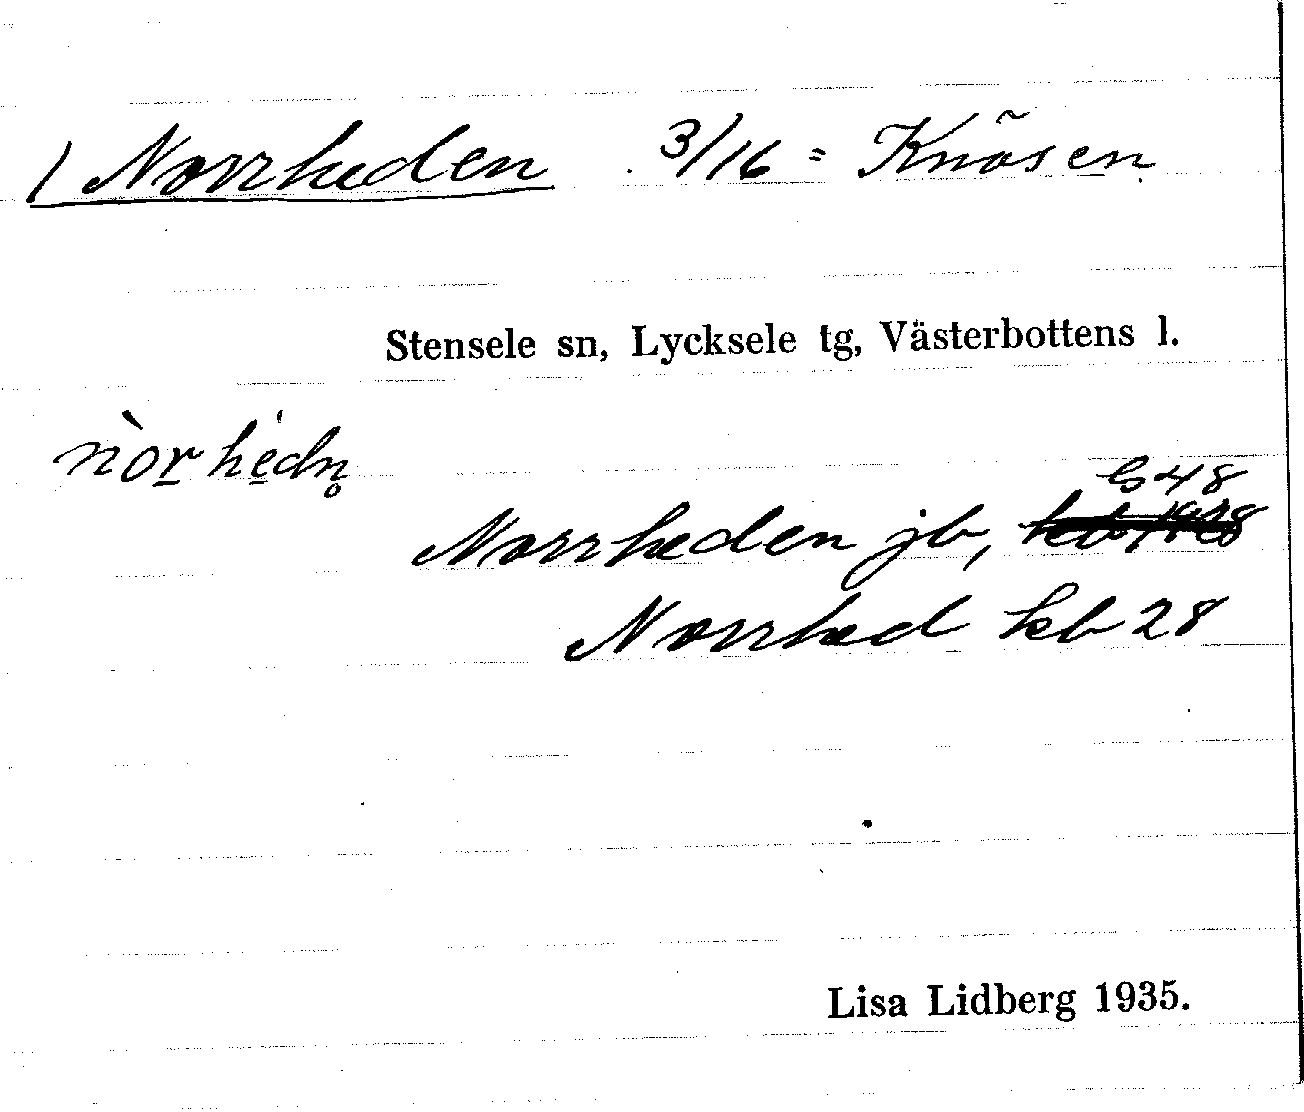 1 Norrheden 3/16 = Knösen
Stensele sn, Lycksele tg, Västerbottens l.
nòrhédn̥
G 48
Norrheden jb,
Norrhed kb 28
Lisa Lidberg 1935.